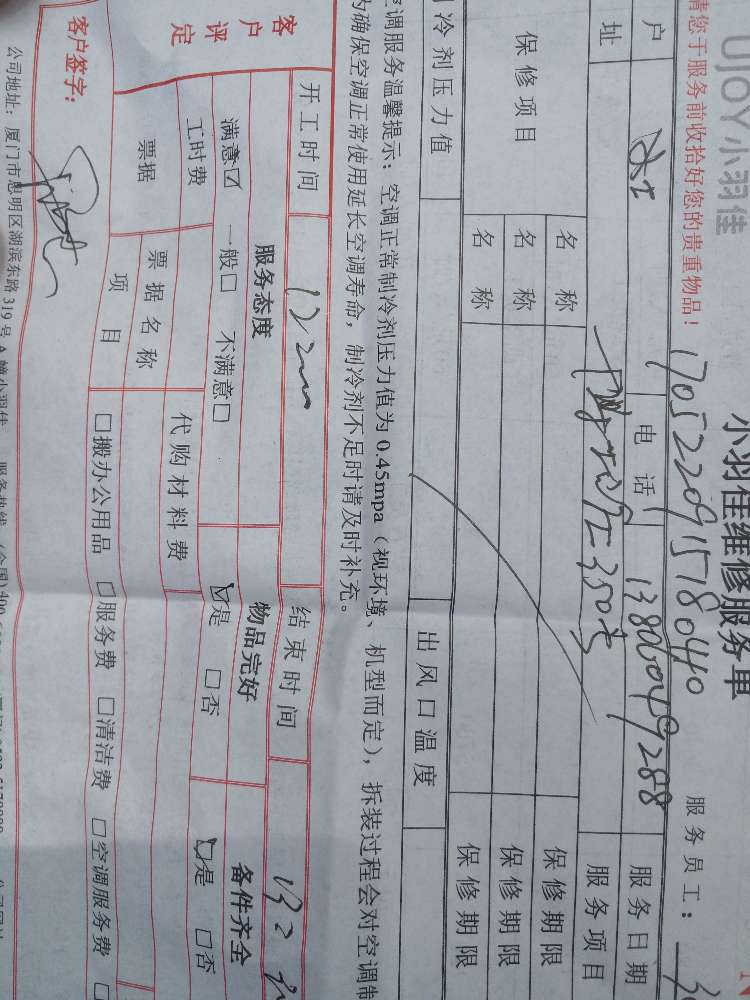 UJOY小羽佳
小羽佳维修服务单
请您于服务前收拾好您的贵重物品！
17052209157180440
服务员工：
户
电话
13806049288
服务日期
址
服务项目
保修项目
名称
保修期限
名称
保修期限
名称
保修期限
冷剂压力值
出风口温度
空调服务温馨提示：空调正常制冷剂压力值为0.45mpa（视环境、机型而定），拆装过程会对空调制
为确保空调正常使用延长空调寿命，制冷剂不足时请及时补充。
开工时间
结束时间
客户评定
服务态度
物品完好
备件齐全
满意☑ 一般□ 不满意□
☑是 □否
☑是 □否
工时费
代购材料费
票据
票据名称
项目
□搬办公用品 □服务费 □清洁费 □空调服务费 □
客户签字：
公司地址：厦门市思明区湖滨东路319号A幢小羽佳